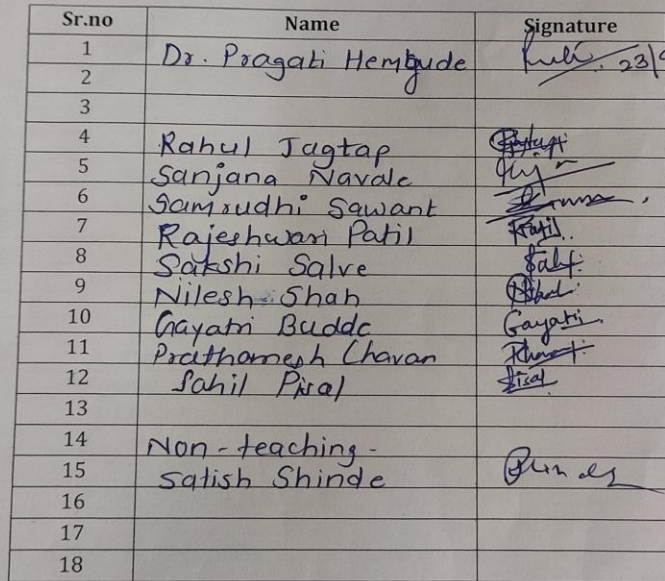 Sr.no Name Signature
1 Dr. Pragati Hembude 23/
2
3
4 Rahul Jagtap
5 Sanjana Navale
6 Samrudhi Sawant
7 Rajeshwari Patil Patil
8 Sakshi Salve
9 Nilesh Shah
10 Gayatri Budde Gayatri
11 Prathamesh Chavan
12 Sahil Pisal Pisal
13
14 Non-teaching-
15 Satish Shinde
16
17
18